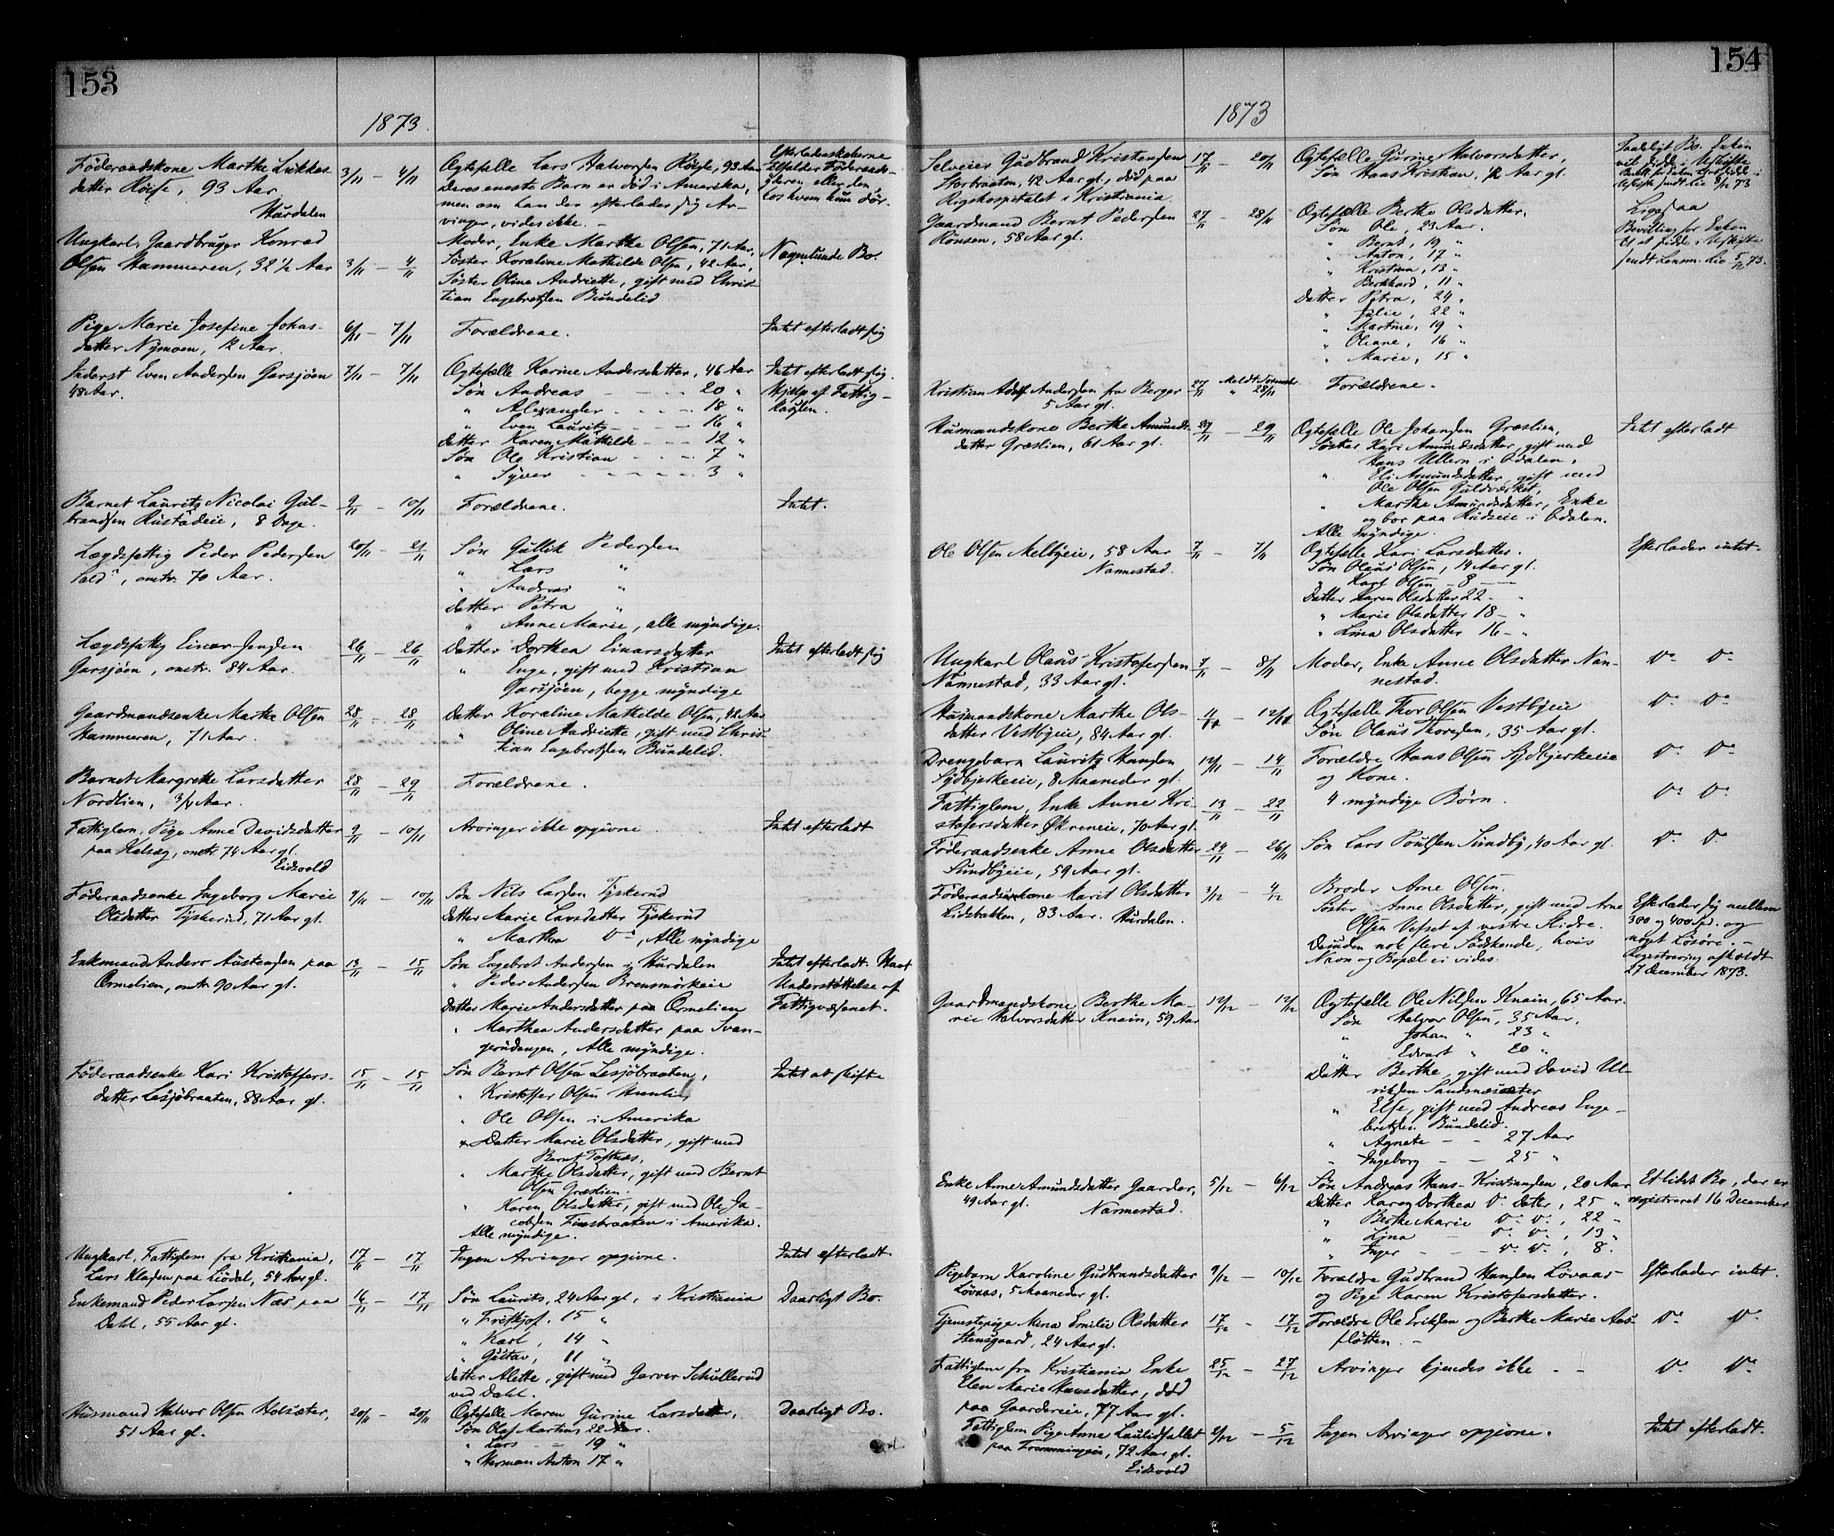 153
1873.
Føderaadskone Marthe Lukkas- 3/11 – 4/11 Ægtefælle Lars Halvorsen Røise, 93 Aar Efterladenskaberne
datter Røise, 93 Aar Deres eneste Barn er død i Amerika, tilfalder Føderaads-
Hurdalen men om han der efterlader sig Ar- giveren eller den
vinger, vides ikke. – hos hvem hun dør.
Ungkarl, Gaardbruger Konrad Moder, Enke Marthe Olsen, 71 Aar,
Olsen Hammeren, 32 1/2 Aar 3/11 – 4/11 Søster Koraline Mathilde Olsen, 42 Aar, Bo.
Søster Oline Andriette, gift med Chris-
tian Engebretsen Bundelid
Pige Marie Josefine Johas- 6/11 – 7/11 Forældrene. Intet efterladt sig
datter Nymoen, 12 Aar.
Inderst Even Andersen Garsjøen 7/11 – 7/11 Ægtefælle Karine Andersdatter, 46 Aar Intet efterladt sig.
48 Aar. Søn Andreas – – – 20 " Hjelp af Fattig-
" Alexander – – – 18 " kassen.
" Even Lauritz – – – 16 "
Datter Karen Mathilde – – – 12 "
Søn Ole Kristian – – – 7 "
" Syver – – – – 3 "
Barnet Lauritz Nicolai Gul- 9/11 – 10/11 Forældrene. Intet.
brandsen Rustadeie, 8 Dage.
Lægdsfattig Peder Pedersen 20/11 – 21/11 Søn Gullik Pedersen
omtr. 70 Aar. " Lars "
" Andreas "
Datter Petra "
" Anne Marie, alle myndige.
Lægdsfattig Einar Jensen 26/11 – 26/11 Datter Dorthea Einarsdatter Intet efterladt sig
Garsjøen, omtr. 84 Aar. " Inge, gift med Kristian
Garsjøen, begge myndige
Gaardmandsenke Marthe Olsen 28/11 – 28/11 Datter Koraline Mathilde Olsen, 42 Aar
Hammeren, 71 Aar. " Oline Andriette, gift med Chris-
tian Engebretsen Bundelid.
Barnet Margrethe Larsdatter 28/11 – 29/11 Forældrene.
Nordlien, 3/4 Aar.
Fattiglem, Pige Anne Davidsdatter 9/11 – 10/11 Arvinger ikke opgivne Intet efterladt
paa Kalsæg, omtr. 74 Aar gl.
Eidsvold
Føderaadsenke Ingeborg Marie 9/11 – 10/11 Søn Nils Larsen Tyskerud
Olsdatter Tyskerud, 71 Aar gl. Datter Marie Larsdatter Tyskerud
" Marthea Do, Alle myndige
Enkemand Anders Austensen paa 13/11 – 15/11 Søn Engebret Andersen i Hurdalen Intet efterladt. Havt
Ørmelien, omtr. 90 Aar gl. " Peder Andersen Brensmørkeie Understøttelse af
Datter Marie Andersdatter paa Ørmelien Fattigvæsenet.
" Marthea Andersdatter paa Svan-
gerudengen, Alle myndige.
Føderaadsenke Kari Kristoffers- 15/11 – 15/11 Søn Bernt Olsen Lesjøbraaten, Intet at skifte
datter Lesjøbraaten, 88 Aar gl. " Kristoffer Olsen
" Ole Olsen i Amerika
Datter Marie Olsdatter, gift med
Bernt Toftnæs,
" Marthe Olsdatter, gift med Bernt
Olsen Græslien.
" Karen Olsdatter, gift med Ole Ja-
cobsen Finsbraaten i Amerika.
Alle myndige.
Ungkarl, Fattiglem fra Kristiania, 17/11 – 17/11 Ingen Arvinger opgivne. Intet efterladt.
Lars Klasen paa Liødal, 54 Aar gl.
Enkemand Peder Larsen Næs paa 16/11 – 17/11 Søn Laurits, 24 Aar gl., i Kristiania Daarligt Bo.
Dahl, 55 Aar gl. " Frithjof, 15 "
" Karl, 14 "
" Gustav, 11 "
Datter Alette, gift med Garver Schullerud
ved Dahl.
Husmand Halvor Olsen Holsæter, 20/11 – 20/11 Ægtefælle Maren Gurine Larsdatter, Daarligt Bo.
51 Aar gl. Søn Olaf Martinus 22 Aar.
" Lars – – 19 "
" Herman Anton 17 "
154
1873
Selveier Gudbrand Kristensen 17/11 – 20/11 Ægtefælle Gurine Halvorsdatter, Bo. Enken
Storbraaten, 42 Aar gl., død paa Søn Hans Kristian, 1/2 Aar gl.
Rigshospitalet i Kristiania.
Gaardmand Bernt Pedersen 27/11 – 28/11 Ægtefælle Berthe Olsdatter. Ligesaa
Rønsen, 58 Aar gl. Søn Ole, 23 Aar. Bevilling for Enken
" Bernt, 19 " til at sidde i Uskifte
" Anton, 17 " sendt Lensm. Lie 5/12 73.
" Kristian, 13 "
" Bernhard, 11 "
Datter Petra, 24 "
" Julie, 22 "
" Martine, 19 "
" Oliane, 16 "
" Marie, 15 "
Kristian Adolf Andersen fra Berger 27/11 28/11 Forældrene.
5 Aar gl.
Husmandskone Berthe Amunds- 29/11 – 29/11 Ægtefælle Ole Johansen Græslien, Intet efterladt
datter Græslien, 61 Aar gl. Søster Kari Amundsdatter, gift med
Hans Ullern i Odalen,
" Eli Amundsdatter, gift med
Ole Olsen Guldværket,
" Marthe Amundsdatter, Enke
og bor paa Rudseie i Odalen.
Alle myndige.
Ole Olsen Melbyeie, 58 Aar 7/11 – 7/11 Ægtefælle Kari Larsdatter. Efterlader intet.
Nannestad. Søn Olaus Olsen, 14 Aar gl.
" Karl Olsen – 8 – –
Datter Karen Olsdatter 22 – "
" Marie Olsdatter 18 – "
" Lina Olsdatter 16 – "
Ungkarl Olaus Kristofersen 7/11 – 8/11 Moder, Enke Anne Olsdatter Nan- Do Do
Nannestad, 33 Aar gl. nestad.
Husmandskone Marthe Ols- 11/11 – 12/11 Ægtefælle Thor Olsen Vestbyeie Do Do
datter Vestbyeie, 84 Aar gl. Søn Olaus Thorsen, 35 Aar gl.
Drengebarn Lauritz Hansen 12/11 – 14/11 Forældre Hans Olsen Sydbjerkeeie Do Do
Sydbjerkeeie, 8 Maaneder gl. og Kone.
Fattiglem, Enke Anne Kri- 13/11 – 22/11 4 myndige Børn. Do Do
stofersdatter Økreneie, 70 Aar gl.
Føderaadsenke Anne Olsdatter 24/11 – 26/11 Søn Lars Poulsen Sundby, 40 Aar gl. Do Do
Sundbyeie, 59 Aar gl.
Føderaadskone Marit Olsdatter 3/12 – 4/12 Broder Arne Olsen.
Lidsbakken, 83 Aar. Hurdalen. Søster Anne Olsdatter, gift med Arne Efterlader sig mellem
Olsen af vestre Slidre. 300 og 400 Spd. og
Desuden nok flere Sødskende, hvis noget Løsøre. –
Navn og Bopæl ei vides. Registrering afholdt
27 December 1873.
Gaardmandskone Berthe Ma- 12/12 – 12/12 Ægtefælle Ole Nilsen Knain, 65 Aar.
rie Halvorsdatter Knain, 59 Aar Søn Halvor Olsen, 35 Aar.
" Johan " 23 "
" Edvart " 20 "
Datter Berthe, gift med David Ul-
riksen Sandnæsæter
" Else, gift med Andreas Enge-
bretsen Bundelid.
" Agnete – – 27 Aar
" Ingeborg – – 25 "
Enke Anne Amundsdatter Gaarder, 5/12 – 6/12 Søn Andreas Hans Kristiansen, 20 Aar Et lidet Bo, der er
49 Aar gl. Nannestad. Datter Karen Dorthea Do datter, 25 " registreret 16 December
" Berthe Marie Do Do, 22 "
" Lina – Do Do, 13 "
" Inger – Do Do, 8.
Pigebarn Karoline Gudbrandsdatter 9/12 – 10/12 Forældre Gudbrand Hansen Løvaas Efterlader intet.
Løvaas, 5 Maaneder gl. og Pige Karen Kristofersdatter.
Tjenestepige Mina Emilie Olsdatter 17/12 – 17/12 Forældre Ole Eriksen og Berthe Marie Aas- Do Do
Stensgaard, 24 Aar gl. fløtten. –
Fattiglem fra Kristiania Enke 25/12 – 27/12 Arvinger kjendes ikke – – Do Do
Elen Marie Hansdatter, død
paa Gaardereie, 77 Aar gl.
Fattiglem Pige Anne Laulidfallet 2/12 – 5/12 Ingen Arvinger opgivne. Intet efterladt.
paa 72 Aar gl.
Eidsvold